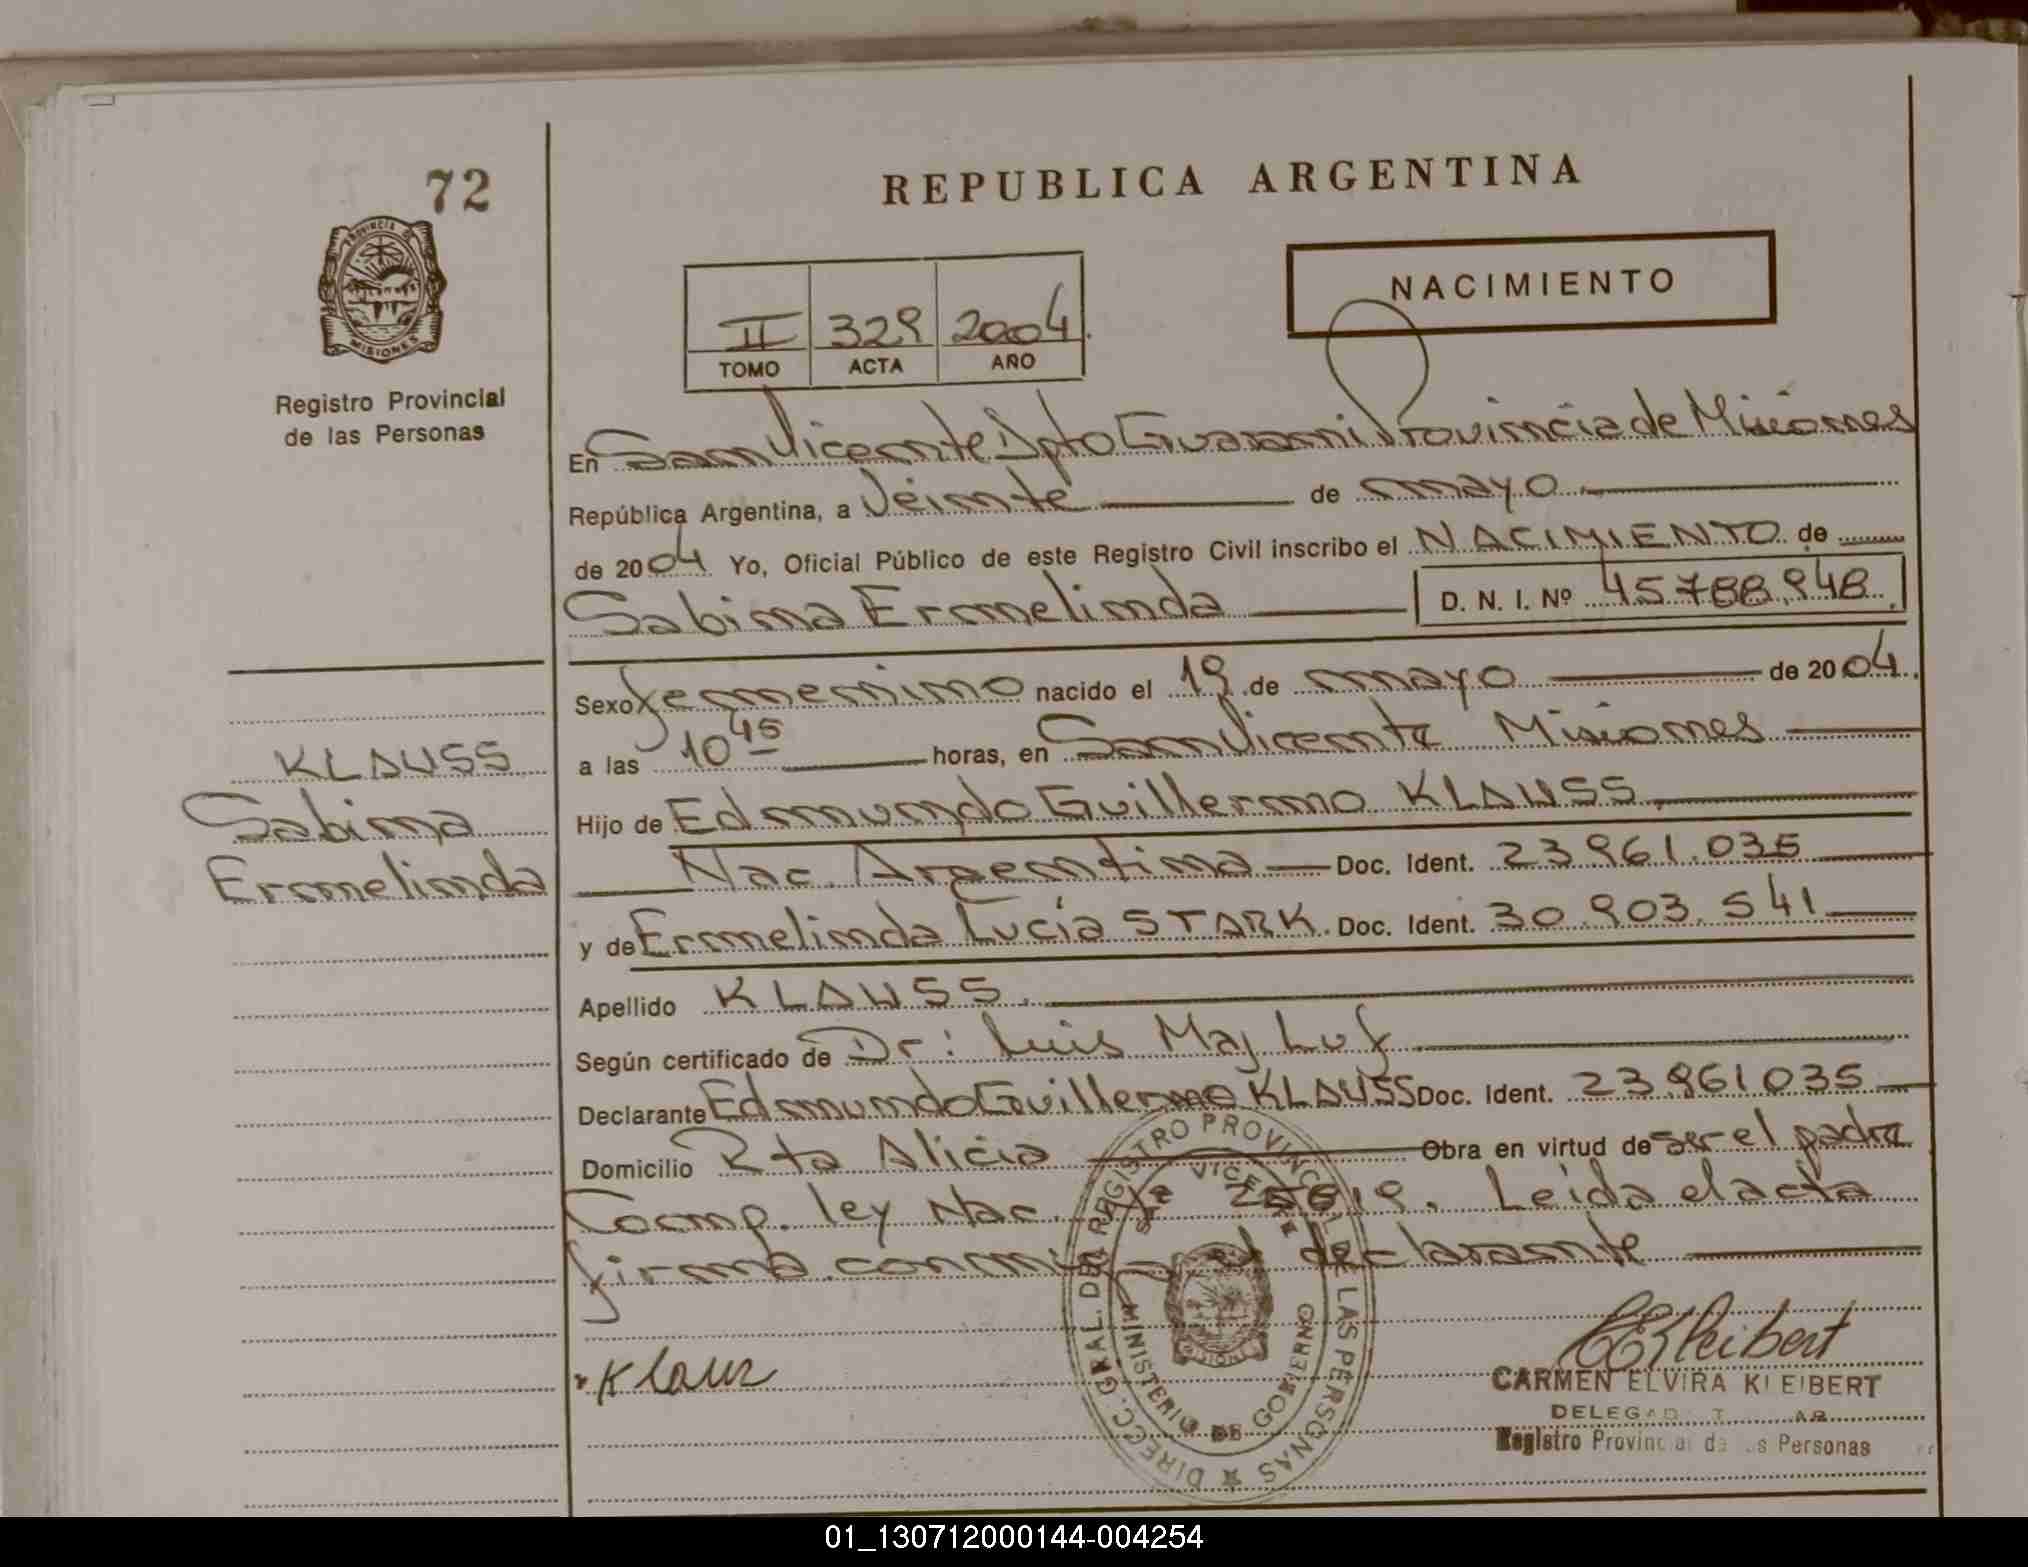 72
REPUBLICA ARGENTINA
PROVINCIA DE
MISIONES
Registro Provincial
de las Personas
NACIMIENTO
II 329 2004.
TOMO ACTA AÑO
En San Vicente Dpto Guarani Provincia de Misiones
República Argentina, a Veinte de mayo.
de 2004 Yo, Oficial Público de este Registro Civil inscribo el NACIMIENTO de
Sabina Ermelinda D. N. I. Nº 45.788.948.
Sexo femenino nacido el 19 de mayo de 2004.
KLAUSS
Sabina
Ermelinda
a las 10 45 horas, en San Vicente Misiones
Hijo de Edmundo Guillermo KLAUSS.
Nac. Argentina Doc. Ident. 23.961.035
y de Ermelinda Lucía STARK. Doc. Ident. 30.903.541
Apellido KLAUSS.
Según certificado de Dr: Luis Maj Luf
Declarante Edmundo Guillermo KLAUSS Doc. Ident. 23.961035
Domicilio Rta Alicia Obra en virtud de ser el padre
Comp. ley Nac. Nº 25819. Leída el acta
firma conmigo el declarante
Klauz
CEKleibert
CARMEN ELVIRA KLEIBERT
Registro Provincial de las Personas
DIRECC. GRAL. DEL REGISTRO PROVINCIAL DE LAS PERSONAS
MINISTERIO DE GOBIERNO
MISIONES
01_130712000144-004254